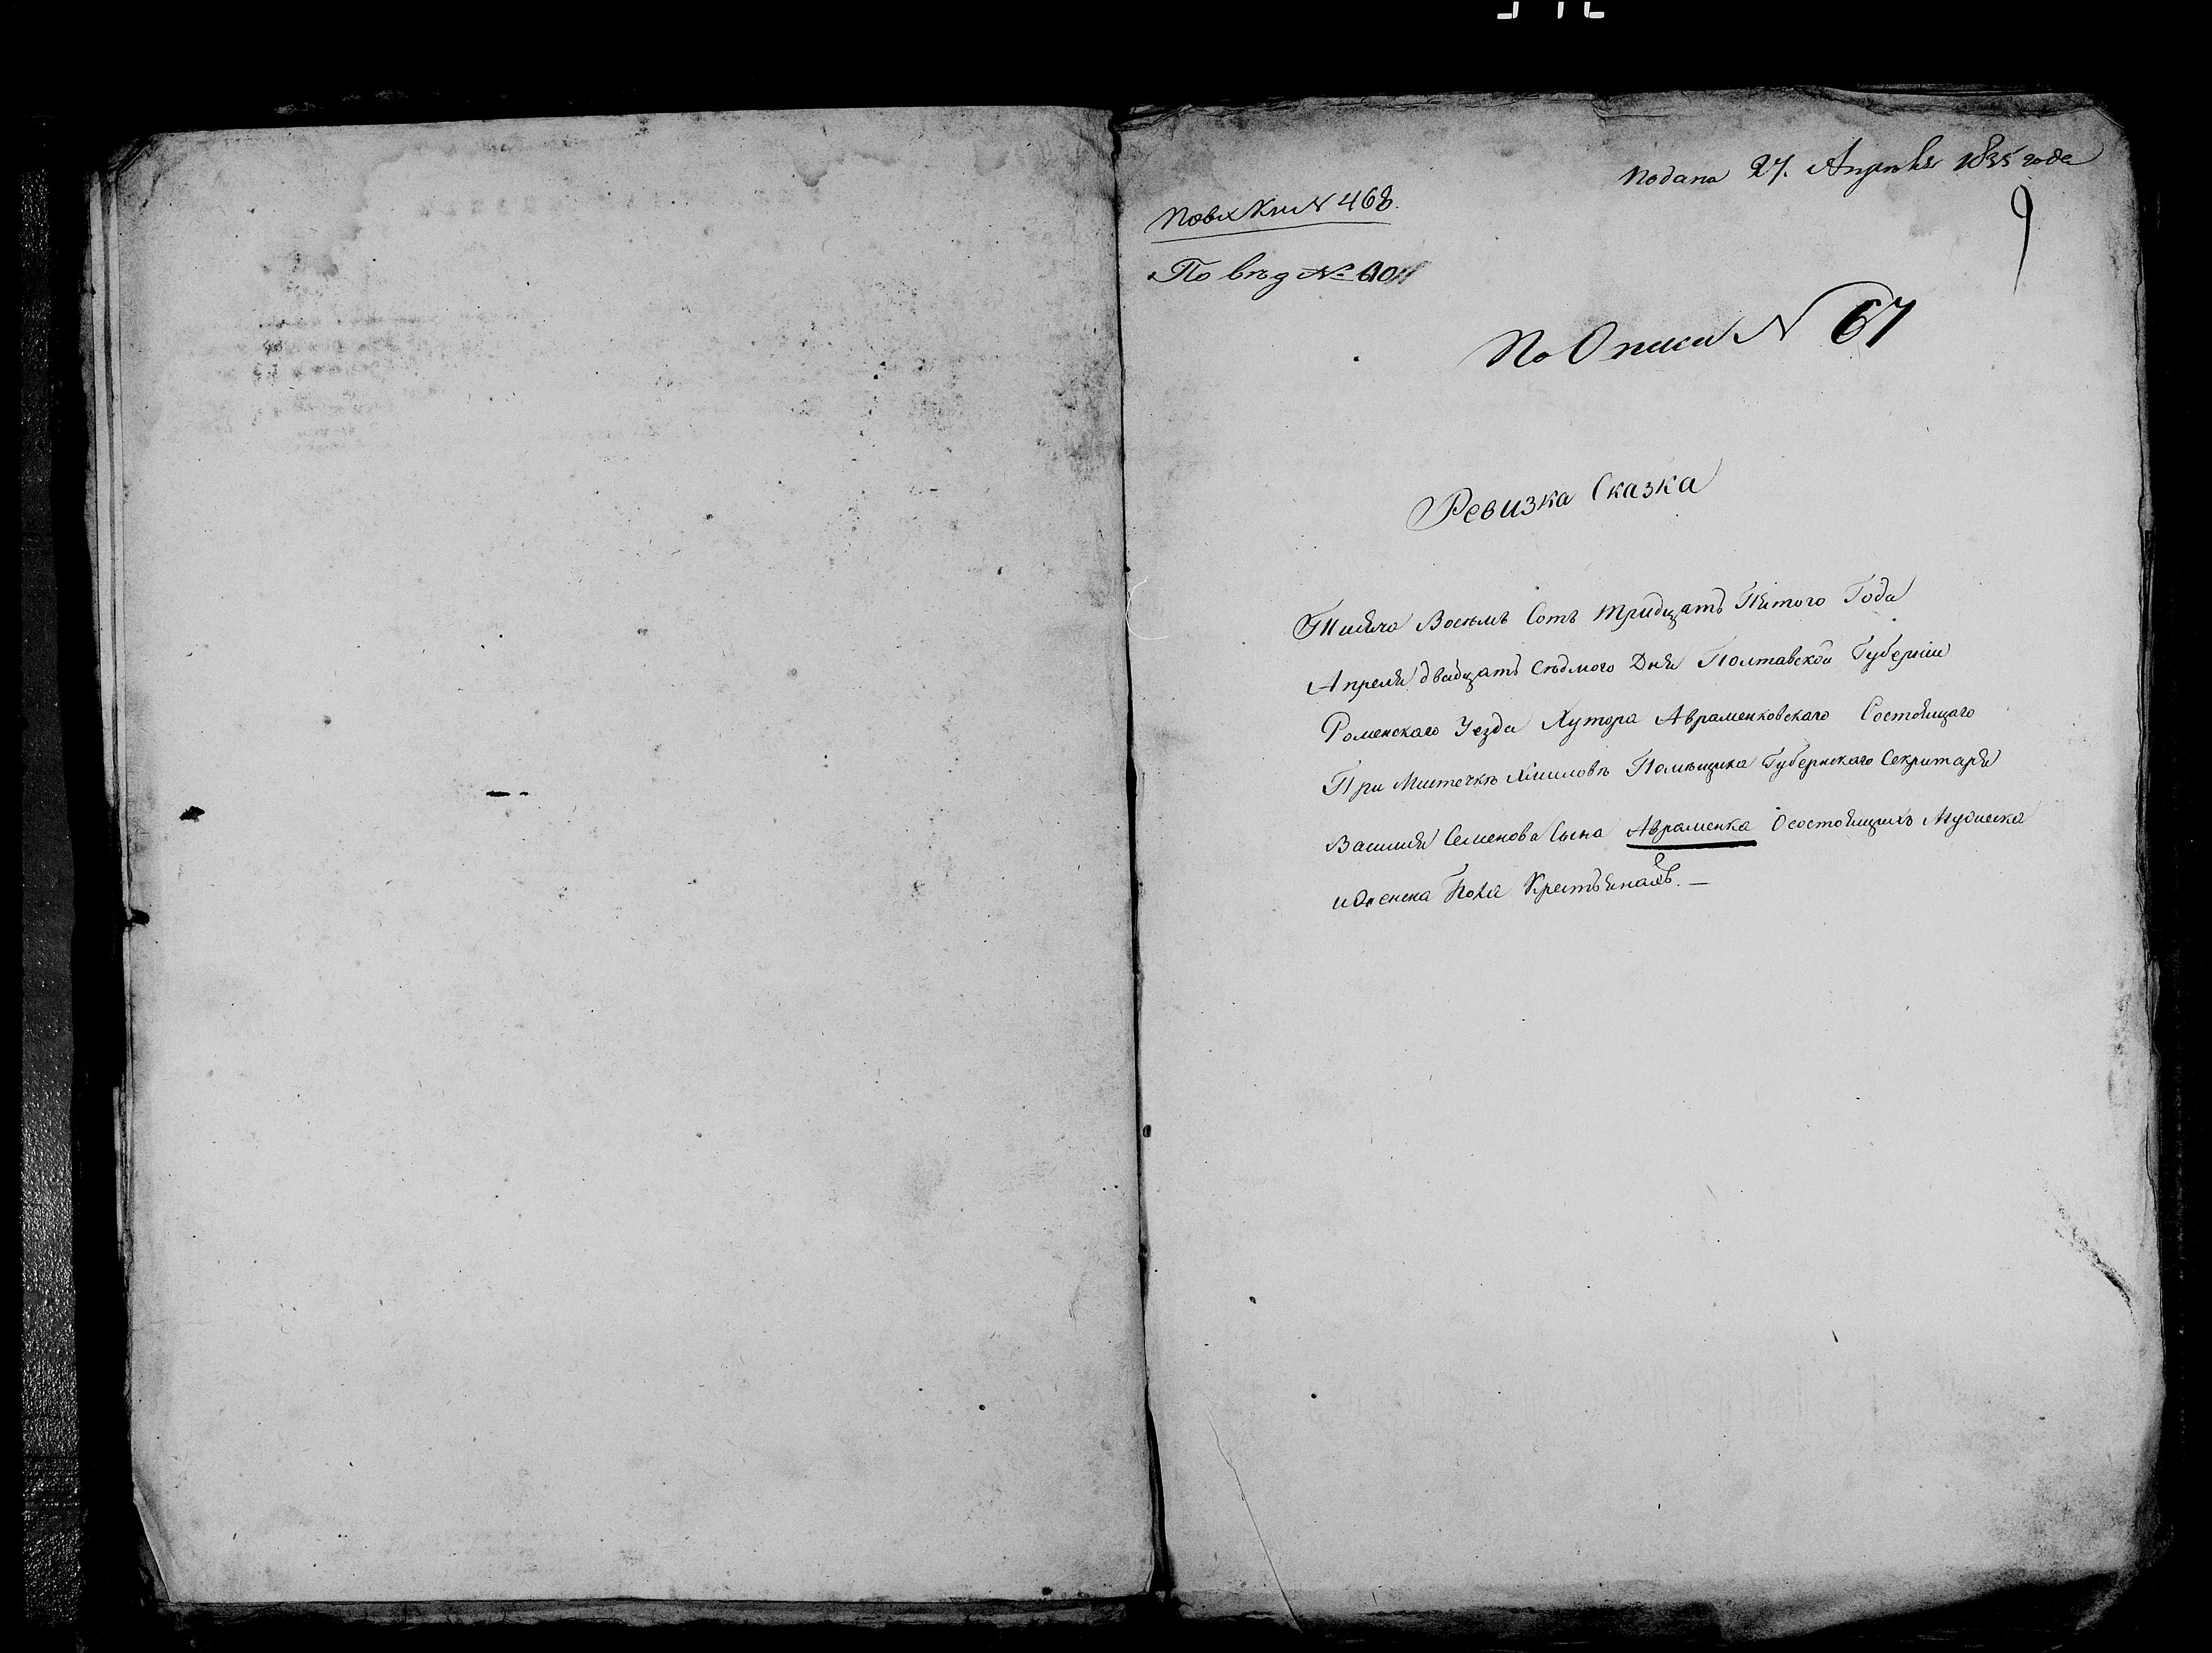 Подана 27. Апреля 1835 года
9
По вх Кни N 468.
По вѣд №
По Описи N 67
Ревизка Сказка
Тисяча Восемъ Сотъ тридцатъ Пятого Года
Апреля двадцатъ Седмого Дня Полтавской Губерніи
Роменскаго Уезда Хутора Авраменковскаго Состоящаго
При Мистечкѣ Хмиловѣ Помѣщика Губернскаго Секритаря
Василия Семенова Сына Авраменка О состоящихъ Мужеска
и Женска Пола Крестьянахъ. —